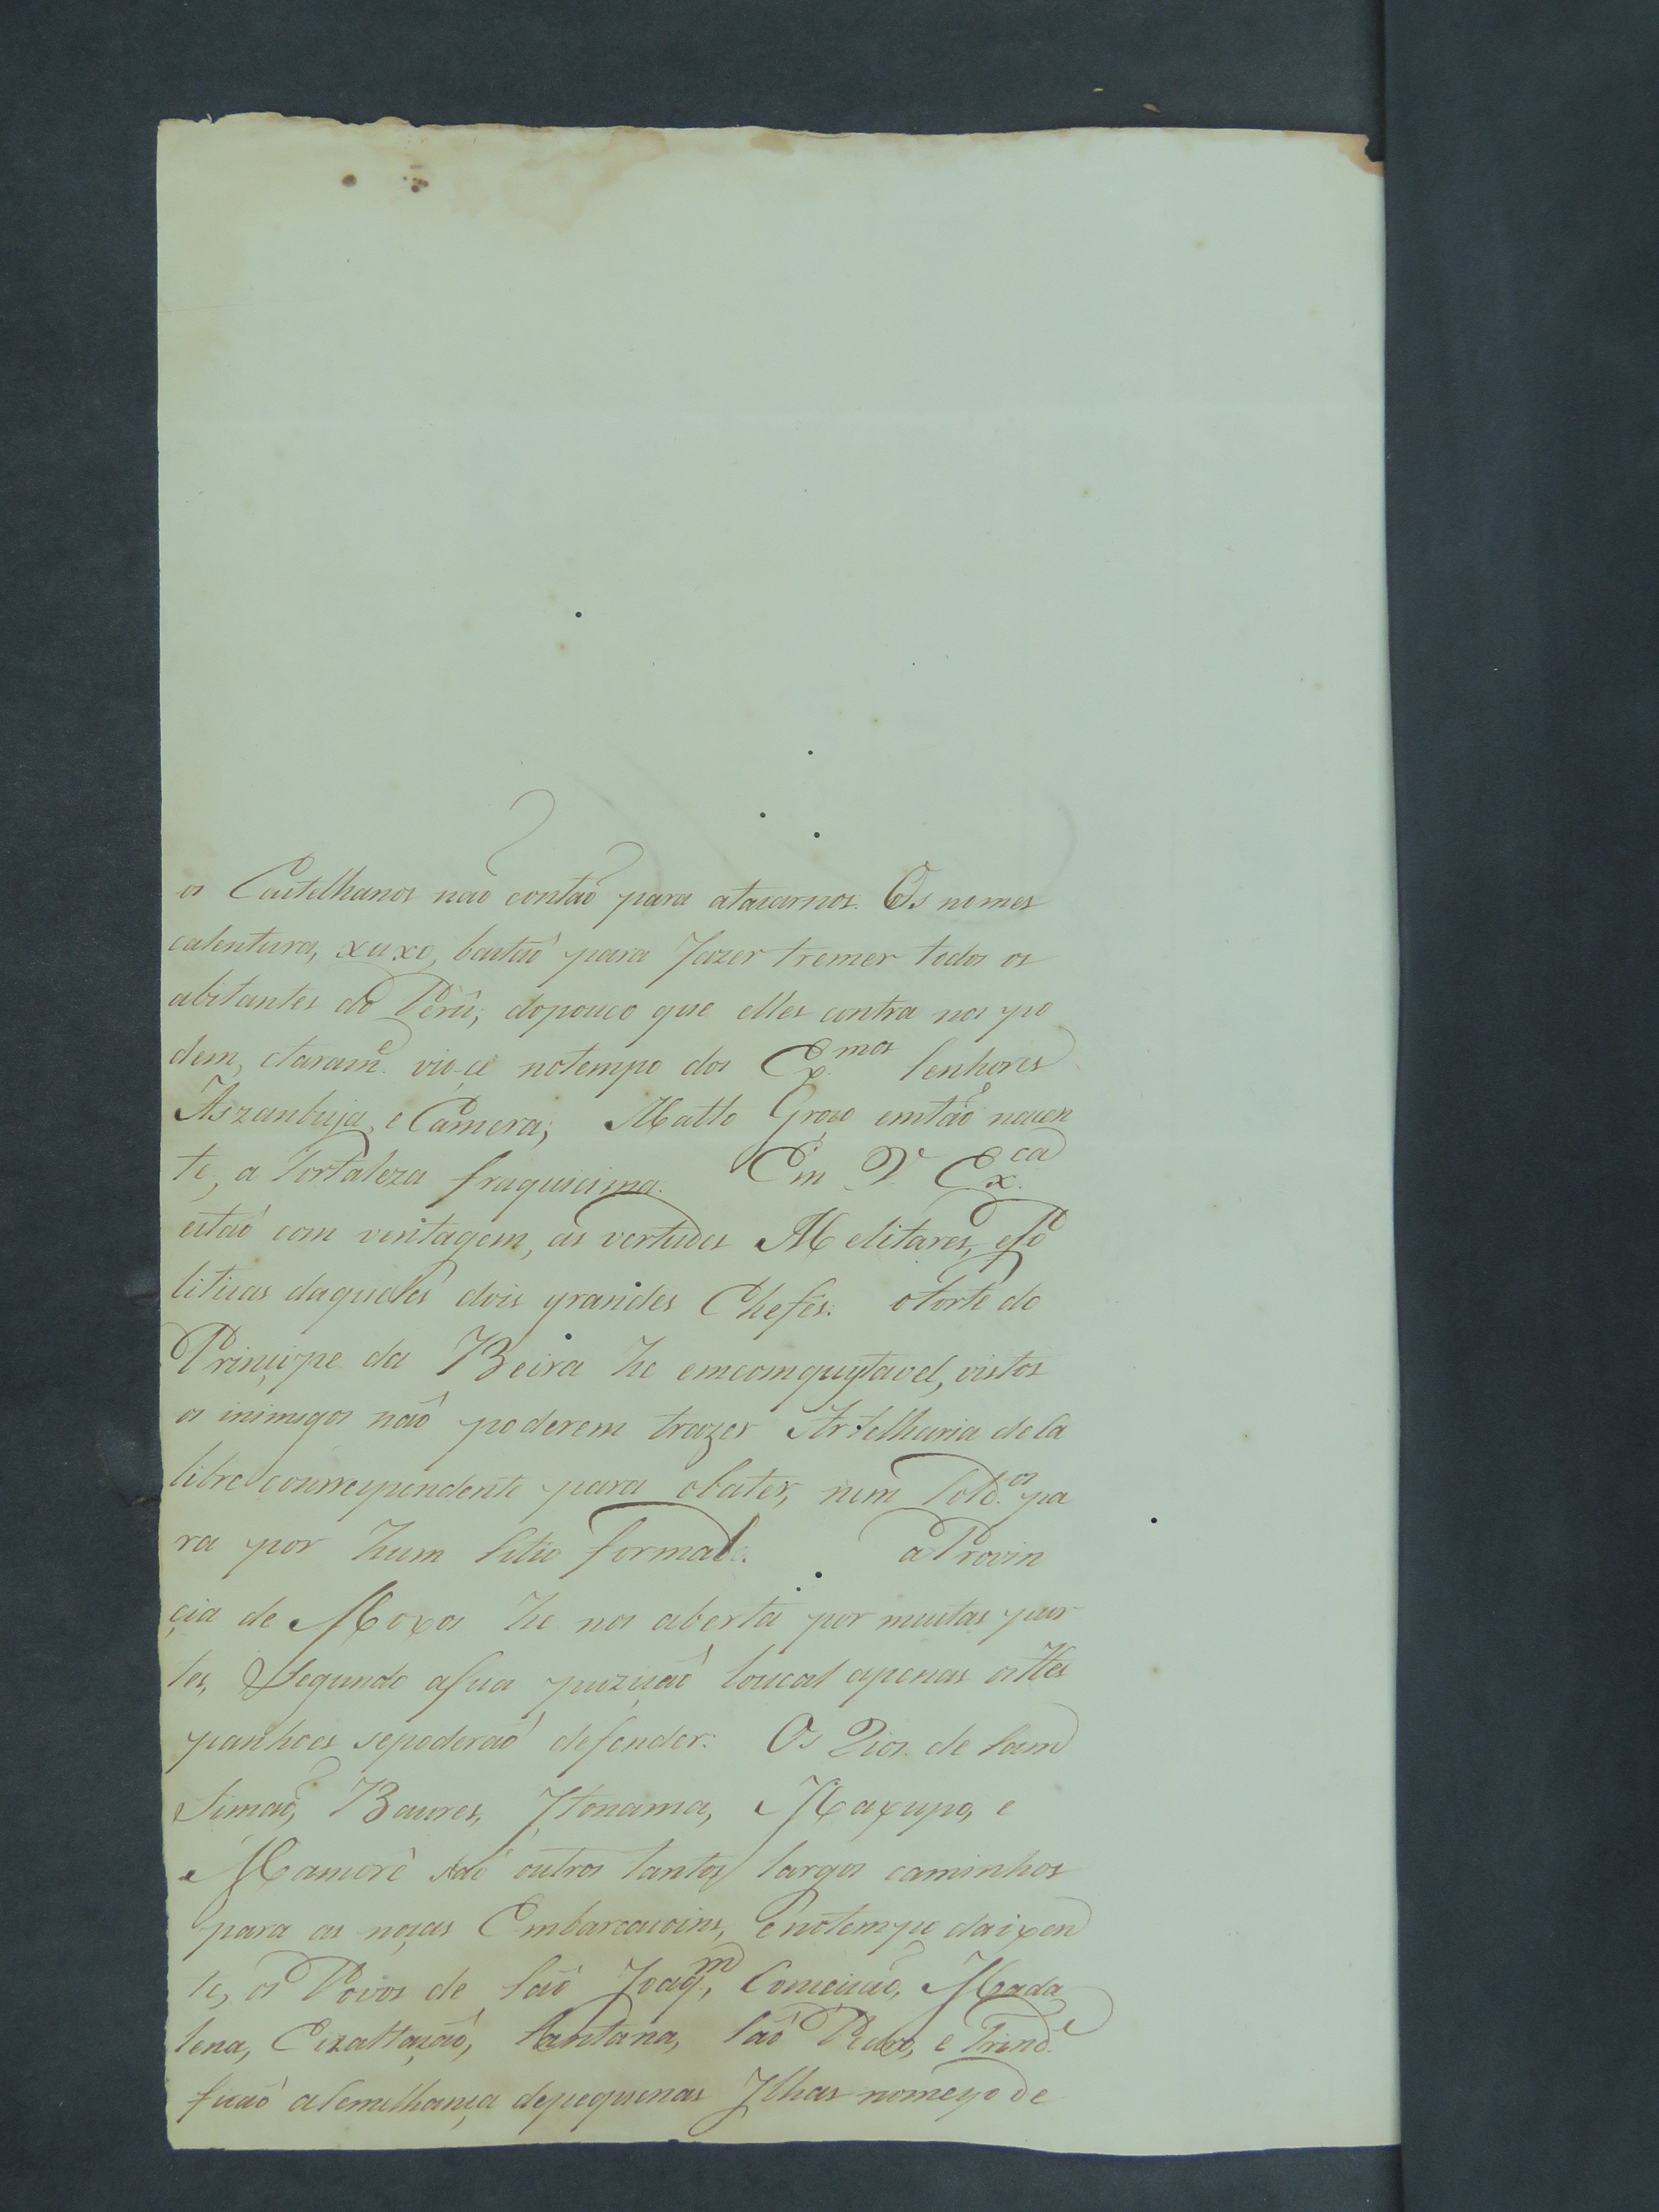 os Castelhanos não contão para atacarnos. Os nomes
calentura, xuxo, bastão para fazer tremer todos os
abitantes do Perû; dopouco que elles contra nos po
dem, claram.e vio-ce notempo dos Ex.mos Senhores
Aszambuja, e Camera; Matto Groço emtão nacen
te, a Fortaleza fraquicima. Em V. Ex.ca
estaõ com ventagem, as vertudes Melitares, ePo
liticas daqueles dois grandes Chefes: oForte do
Prinçipe da Beira he emcomquystavel, vistos
os inimigos não poderem trazer Artelharia deca
libre courrespondente para obater, nem Sold.os pa
ra por hum Sitio formal. aProvin
çia de Moxos he nos aberta por muitas par
tes, Segundo aSua puzicaõ loucal apenas osHes
panhoes sepoderaõ defender: Os Rios de Sam
Simaõ, Baures, Itonama, Maxupo, e
Mamorê saõ outros tantos largos caminhos
para as noças Embarcacoins, e notempo daixen
te, os Povos de Saõ Joaq.m, Conceicaõ, Mada
lena, Eixaltaçaõ, Santana, Saõ Pedro, e Trind.e
ficaõ aSemilhança depequenas Ilhas nomeyo de